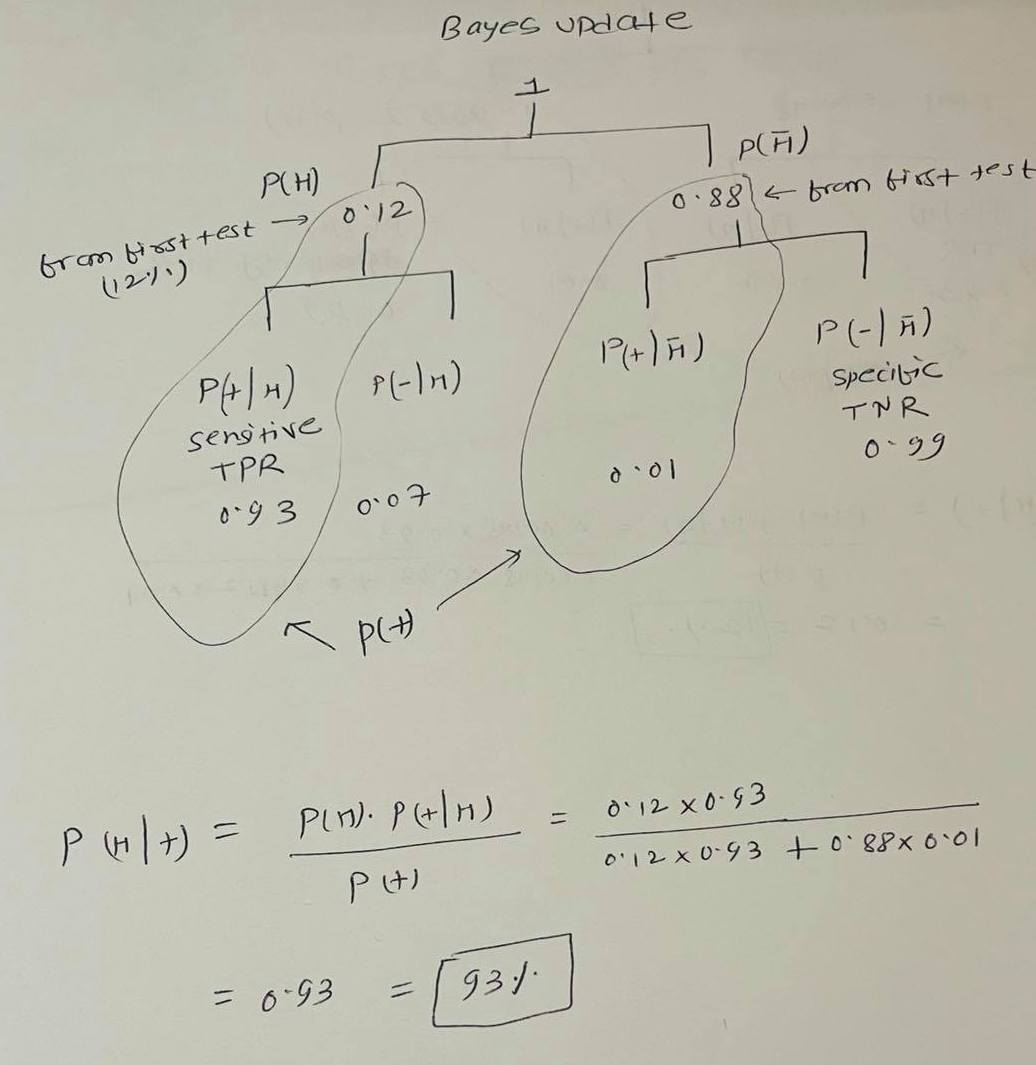 Bayes update
1
P(H)
P(H̄)
from first test → 0.12
(12%)
0.88 ← from first test
P(+|H)
P(-|H)
P(+|H̄)
P(-|H̄)
sensitive
TPR
0.93
0.07
0.01
specific
TNR
0.99
P(+)
P(H|+) = P(H). P(+|H) / P(+) = 0.12 x 0.93 / 0.12 x 0.93 + 0.88 x 0.01
= 0.93 = 93%